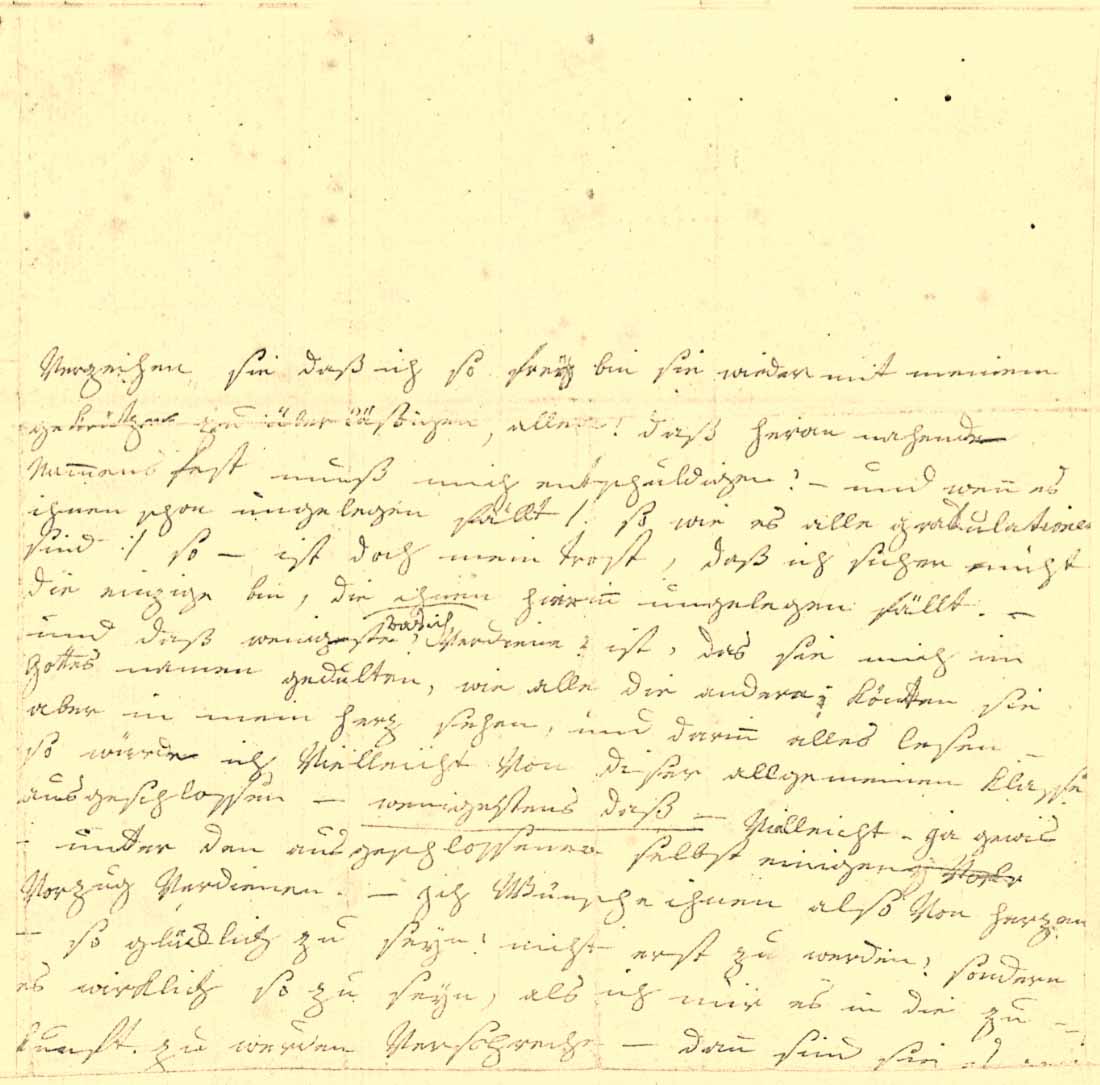 Verzeihen sie daß ich so freÿ bin sie wieder mit meinem
gekritzel zu überlästigen, allein! daß heran nahende
Nam̅ens fest muß mich entschuldigen: – und wen̅ es
ihnen schon ungelegen fällt /: so wie es alle gratulationen
sind :/ so – ist doch mein trost, daß ich sicher nicht
die einzige bin, die ihnen hierin̅ ungelegen fällt. –
und daß wenigste, was ich Verdiene: ist, das sie mich im
Gottes namen gedulten, wie alle die andere; könten sie
aber in mein herz sehen, und darin̅ alles lesen –
so würde ich Vielleicht Von diser allgemeinen klasse
ausgeschlossen – wenigstens daß – Villeicht – ja gewis
– unter den ausgeschlossenen selbst einigen
Vorzug Verdienen. – Jch Wünsche ihnen also Von herzen
– so glücklich zu seyn: nicht erst zu werden: sondern
es wirklich so zu seyn, als ich mir es in die zu –
kunft zu werden Verspreche – dan̅ sind sie